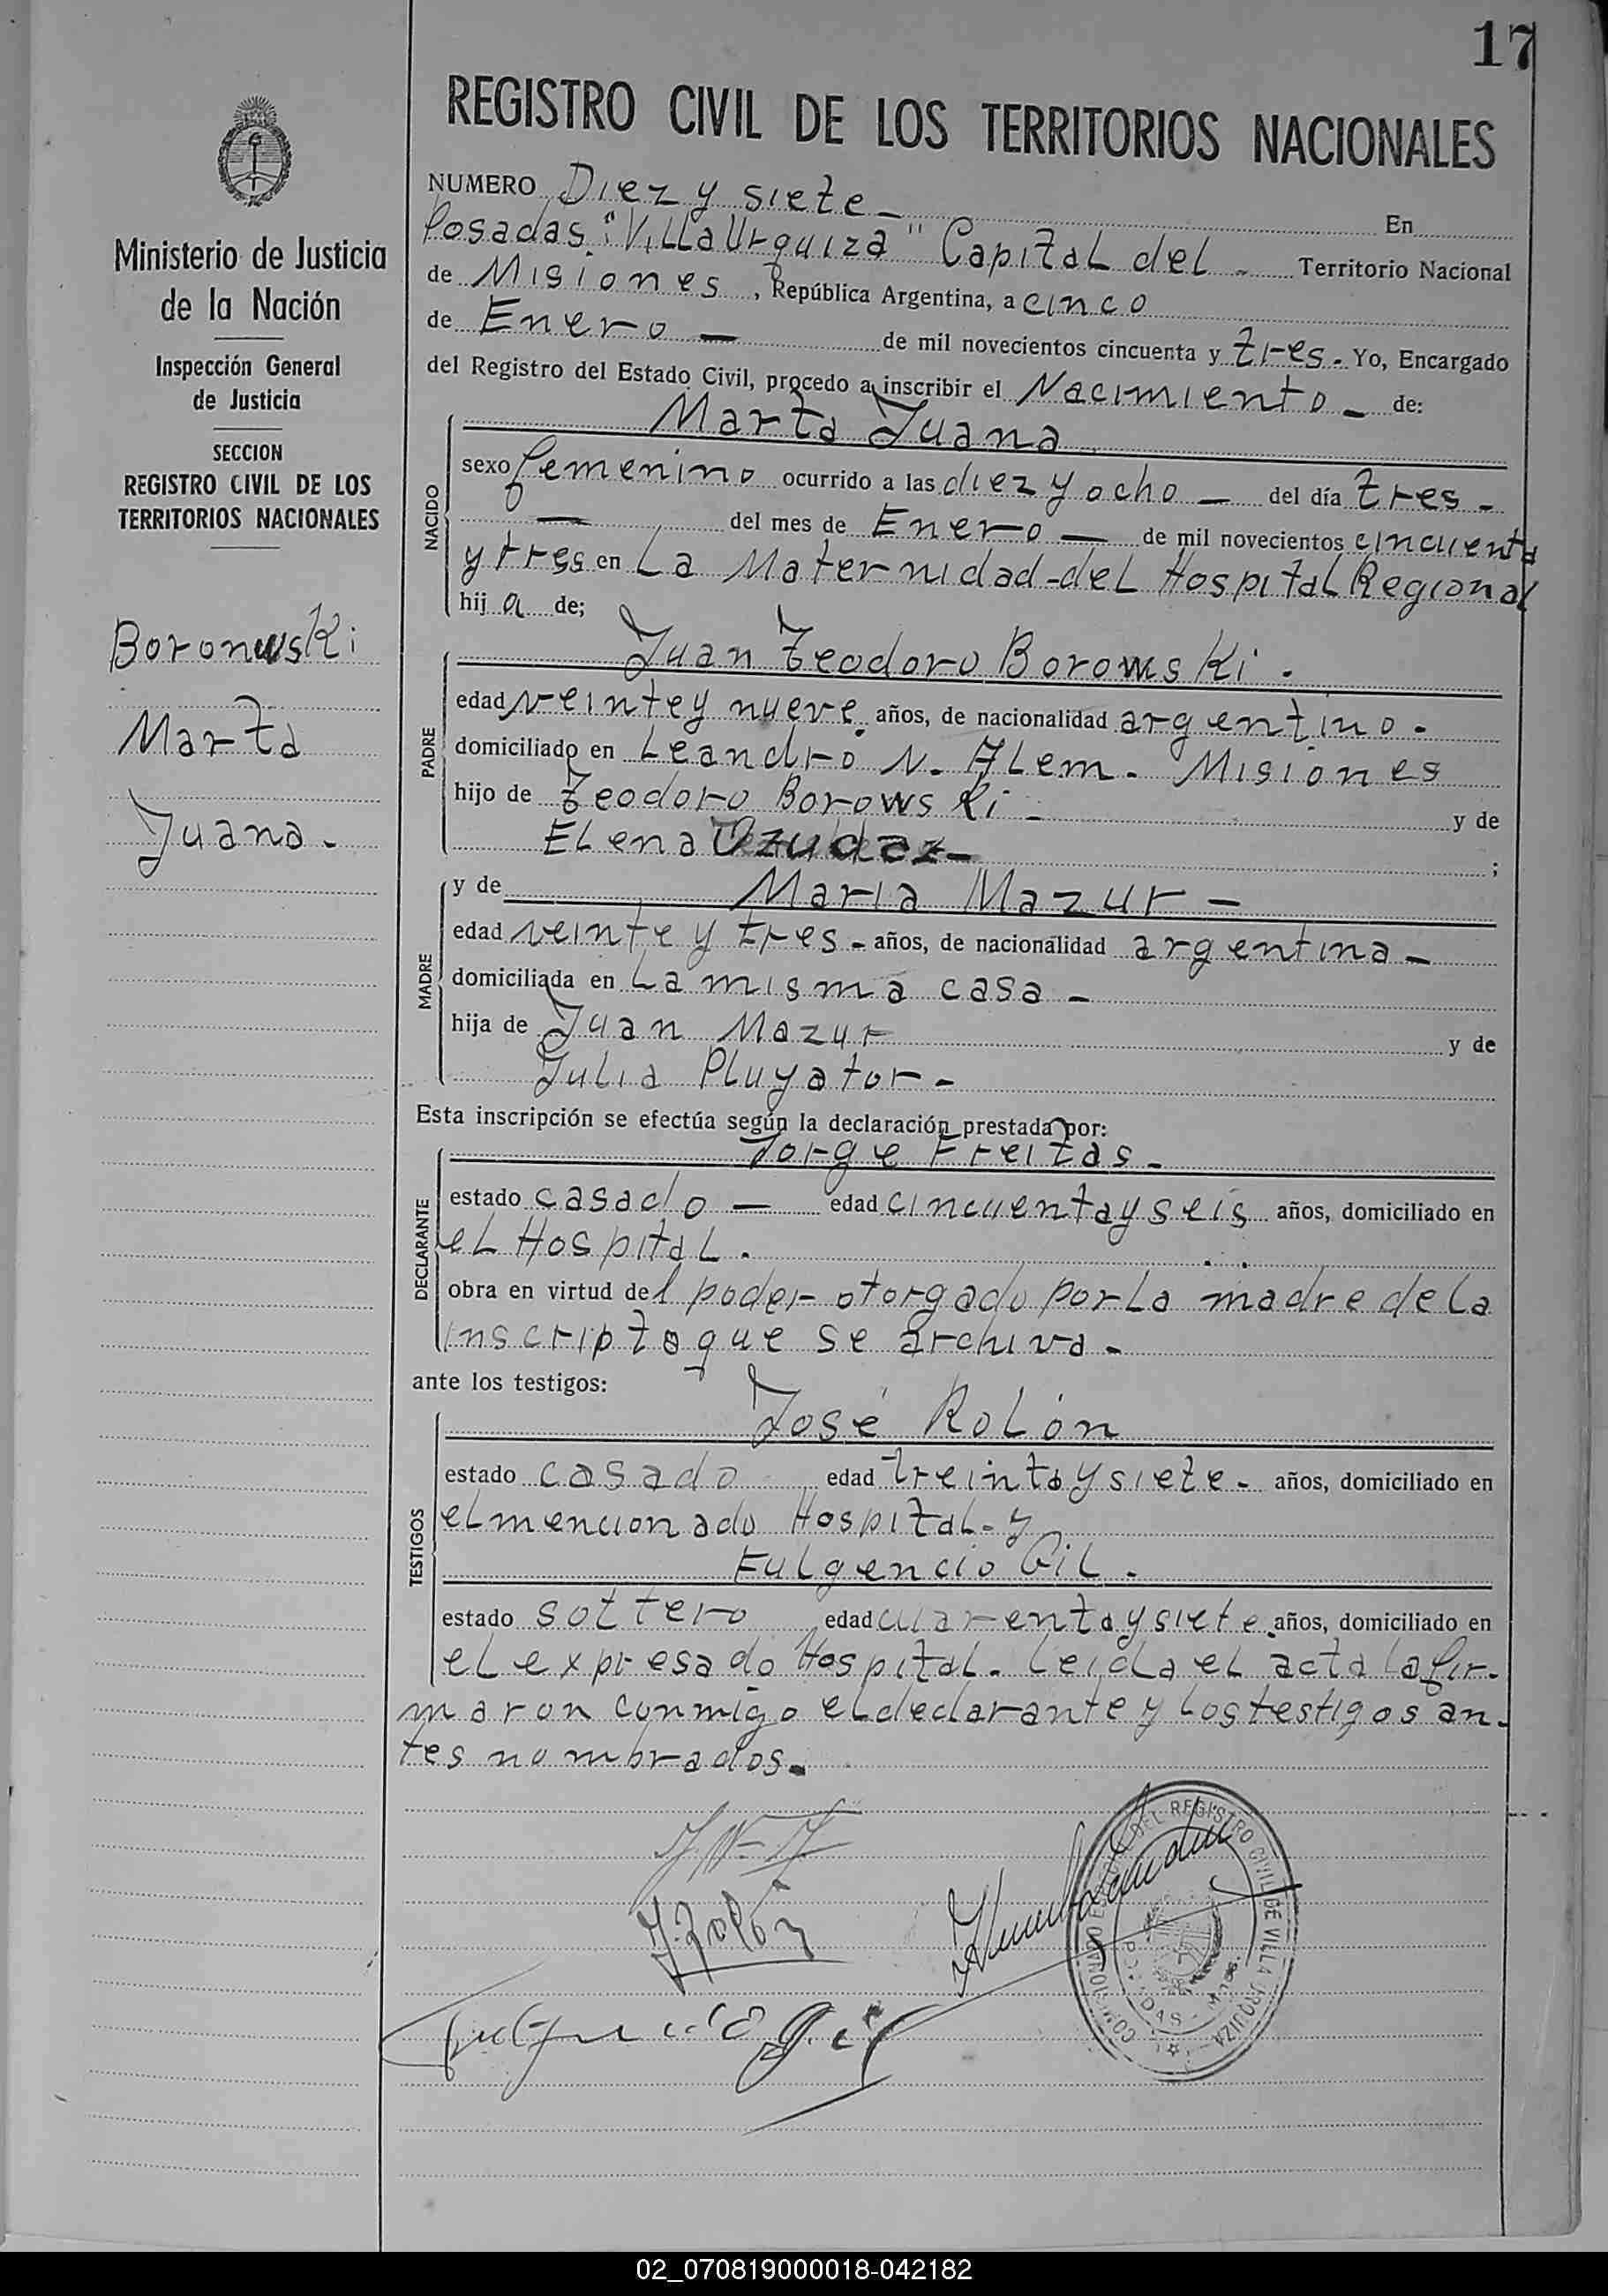 17
REGISTRO CIVIL DE LOS TERRITORIOS NACIONALES
Ministerio de Justicia
de la Nación
Inspección General
de Justicia
SECCION
REGISTRO CIVIL DE LOS
TERRITORIOS NACIONALES
Boronwski
Marta
Juana.
NUMERO Diez y siete - En
Posadas "Villa Urquiza" Capital del - Territorio Nacional
de Misiones, República Argentina, a cinco
de Enero — de mil novecientos cincuenta y tres - Yo, Encargado
del Registro del Estado Civil, procedo a inscribir el Nacimiento - de:
Marta Juana
NACIDO
sexo femenino ocurrido a las diez y ocho — del día tres -
— del mes de Enero — de mil novecientos cincuenta
y tres en La Maternidad - del Hospital Regional
hij a de;
Juan Teodoro Borowski.
PADRE
edad veinte y nueve años, de nacionalidad argentino.
domiciliado en Leandro N. Alem. Misiones
hijo de Teodoro Borowski - y de
Elena ;
y de Maria Mazur -
MADRE
edad veinte y tres - años, de nacionalidad argentina -
domiciliada en La misma casa -
hija de Juan Mazur y de
Julia Pluyator -
Esta inscripción se efectúa según la declaración prestada por:
Jorge Freitas -
DECLARANTE
estado casado — edad cincuenta y seis años, domiciliado en
el Hospital.
obra en virtud del poder otorgado por la madre de la
inscripto que se archiva -
ante los testigos:
José Rolón
TESTIGOS
estado casado edad treinta y siete - años, domiciliado en
el mencionado Hospital - y
Fulgencio Gil.
estado soltero edad cuarenta y siete años, domiciliado en
el expresado Hospital. Leida el acta la fir-
maron conmigo el declarante y los testigos an-
tes nombrados.
J. Rolón
Fulgencio Gil
DEL REGISTRO CIVIL DE VILLA URQUIZA
02_070819000018-042182